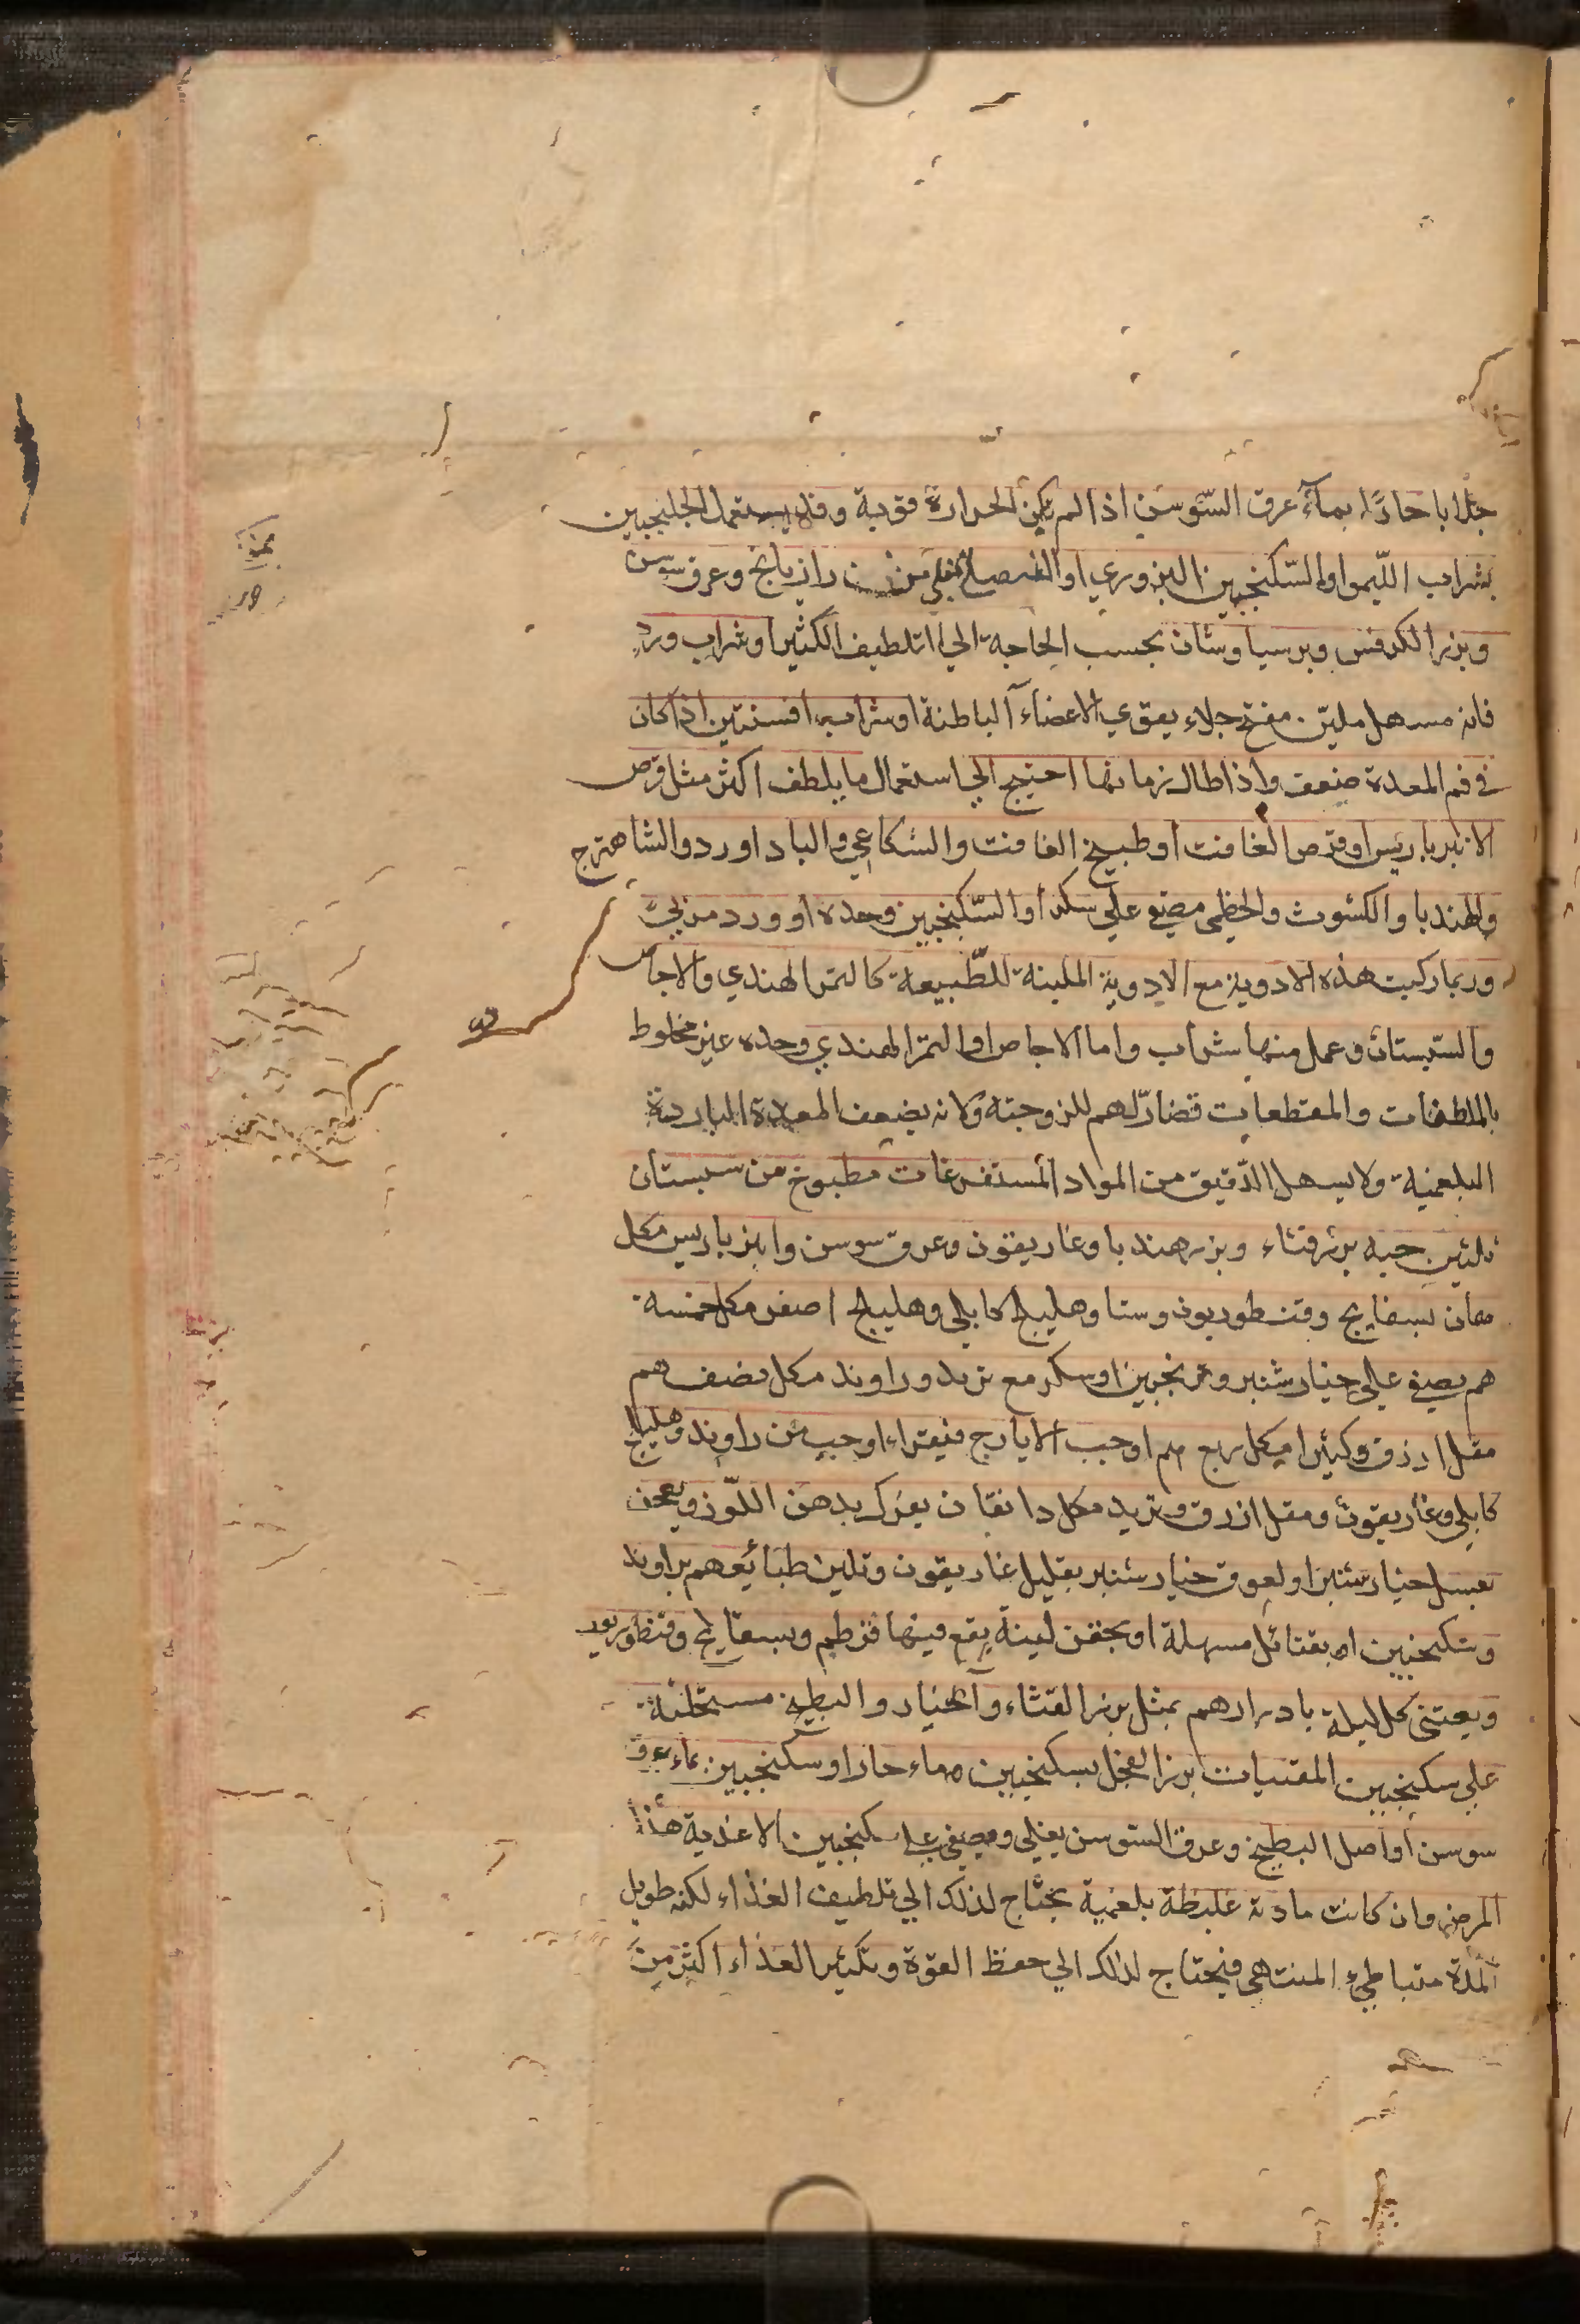 جلابا حارًا بماء عرق السّوسن اذا لم يكن الحرارة قوية وقد يستعمل الجلنجبين
بشراب اللّيموا والسّكنجبين البزوري او من رازيانج وعرق سوس
وبزر الكرفس وبرسياوشان بحسب الحاجة الي تلطيف الكثير او شراب ورد
فانه مسهل مليّن مفتح جلاء يقوي الاعضاء الباطنة او شراب افسنتين اذا كان
في فم المعدة ضعف واذا طال زمانها احتيج الي استعمال ما يلطف اكثر مثل قرص
الانبرباريس او قرص الغافت او طبيخ الغافت والشكاعي والباداورد والشاهترج
والهندبا والكشوث والخطمى مصفي علي سكر او السّكنجبين وحده او ورد مربيّ
وربما ركبت هذه الادوية مع الادوية الملينة للطّبيعة كالتمر الهندي والاجاص
والسّبستان وعمل منها شراب واما الاجاص او التمر الهندي وحده غير مخلوط
بالملطفات والمقطعات فضارّ لهم للزوجته ولانه يضعف المعدة الباردة
البلغمية ولا يسهل الدّقيق من المواد المستفرغات مطبوخ من سبستان
ثلثين حبه بزر قثاء وبزر هندبا وغاريقون وعرق سوسن وانبرباريس مكل
بسفايج وقنطوريون وسنا وهليلج كابلى وهليلج اصفر مكل خمسة
هم يصفي علي خيار شنبر وترنجبين او سكر مع تربد وراوند مكل نصف هم
مقل ازرق وكثيرا مكل ربع هم او حب الايارج فيقراء او حب من راوند وهليلج
كابلي وغاريقون ومقل ازرق وتربد مكل دانقان يعرك بدهن اللّوز ويعجن
بعسل خيار شنبر او لعوق خيار شنبر بقليل غاريقون وتلين طبائعهم براوند
وسكنجبين او بفتائل مسهلة او بحقن لينة يقع فيها قرطم وبسفايج وقنطوريون
ويعتنى كل ليلة بادرارهم بمثل بزر القثاء والخيار والبطيخ مستحلبة
علي سكنجبين المقييات بزر الفجل بسكنجبين وماء حار او سكنجبين بماء عرق
سوسن او اصل البطيخ وعرق السّوسن يغلي ويصفى علي سكنجبين الاغذية هذا
المرض وان كانت مادته غليظة بلغمية يحتاج لذلك الي تلطيف الغذاء لكنه طويل
المدة متباطيء المنتهى فيحتاج لذلك الي حفظ القوة وتكثير الغذاء اكثر من